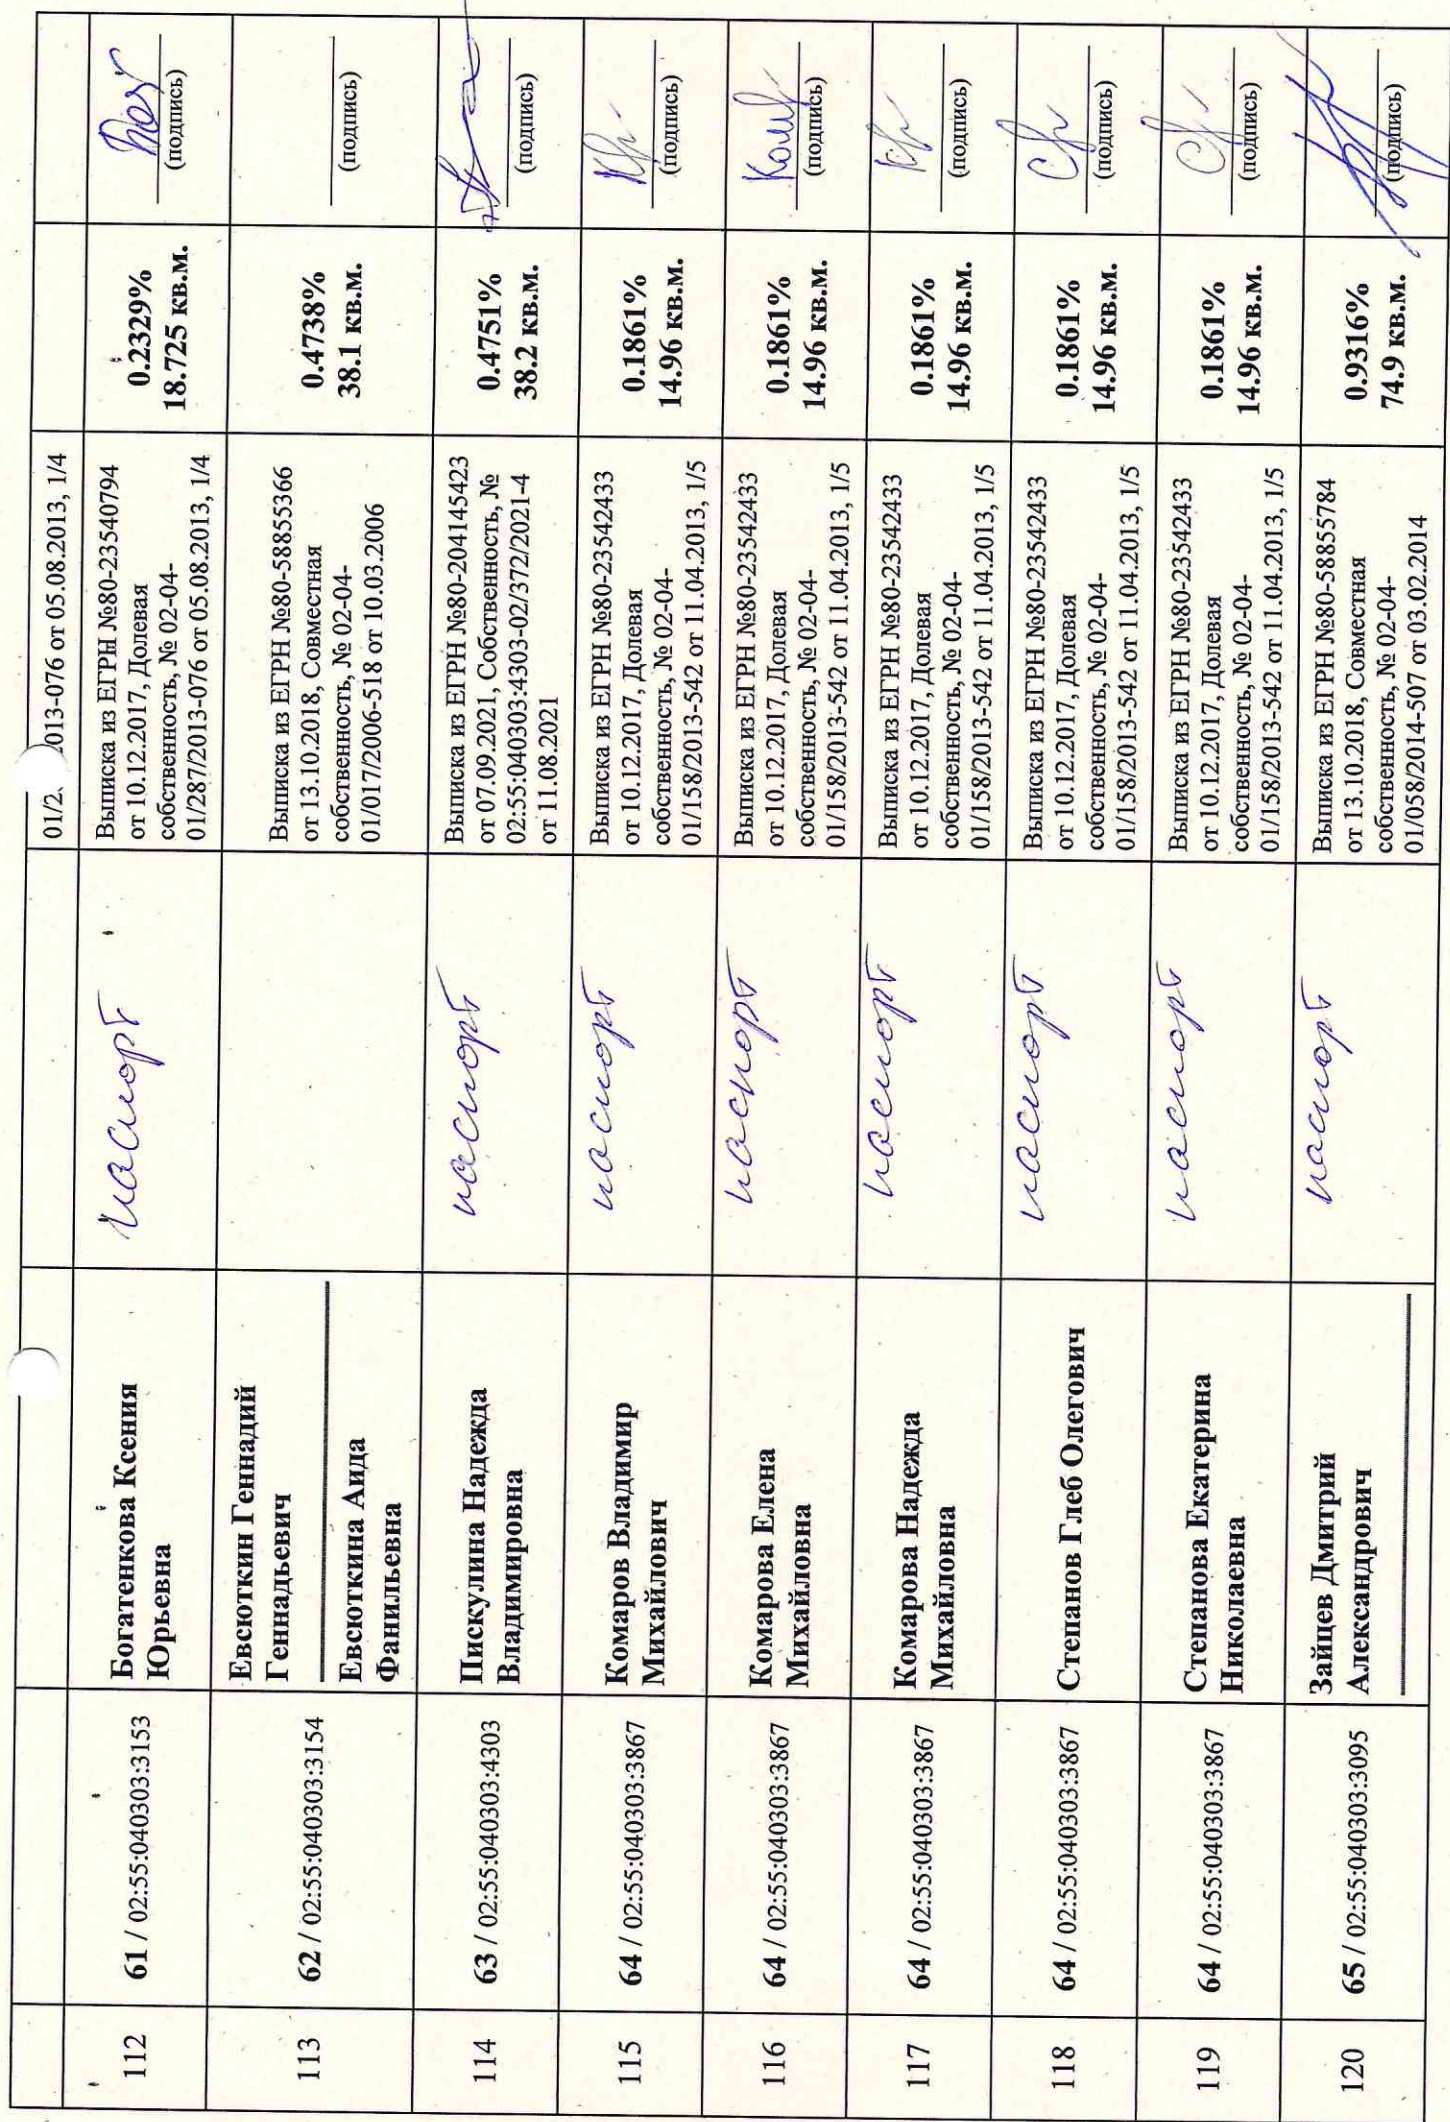 01/2 013-076 от 05.08.2013, 1/4
112
61 / 02:55:040303:3153
Богатенкова Ксения
Юрьевна
паспорт
Выписка из ЕГРН №80-23540794
от 10.12.2017, Долевая
собственность, № 02-04-
01/287/2013-076 от 05.08.2013, 1/4
0.2329%
18.725 кв.м.
(подпись)
113
62 / 02:55:040303:3154
Евсюткин Геннадий
Геннадьевич
Евсюткина Аида
Фанильевна
Выписка из ЕГРН №80-58855366
от 13.10.2018, Совместная
собственность, № 02-04-
01/017/2006-518 от 10.03.2006
0.4738%
38.1 кв.м.
(подпись)
114
63 / 02:55:040303:4303
Пискулина Надежда
Владимировна
паспорт
Выписка из ЕГРН №80-204145423
от 07.09.2021, Собственность, №
02:55:040303:4303-02/372/2021-4
от 11.08.2021
0.4751%
38.2 кв.м.
(подпись)
115
64 / 02:55:040303:3867
Комаров Владимир
Михайлович
паспорт
Выписка из ЕГРН №80-23542433
от 10.12.2017, Долевая
собственность, № 02-04-
01/158/2013-542 от 11.04.2013, 1/5
0.1861%
14.96 кв.м.
(подпись)
116
64 / 02:55:040303:3867
Комарова Елена
Михайловна
паспорт
Выписка из ЕГРН №80-23542433
от 10.12.2017, Долевая
собственность, № 02-04-
01/158/2013-542 от 11.04.2013, 1/5
0.1861%
14.96 кв.м.
(подпись)
117
64 / 02:55:040303:3867
Комарова Надежда
Михайловна
паспорт
Выписка из ЕГРН №80-23542433
от 10.12.2017, Долевая
собственность, № 02-04-
01/158/2013-542 от 11.04.2013, 1/5
0.1861%
14.96 кв.м.
(подпись)
118
64 / 02:55:040303:3867
Степанов Глеб Олегович
паспорт
Выписка из ЕГРН №80-23542433
от 10.12.2017, Долевая
собственность, № 02-04-
01/158/2013-542 от 11.04.2013, 1/5
0.1861%
14.96 кв.м.
(подпись)
119
64 / 02:55:040303:3867
Степанова Екатерина
Николаевна
паспорт
Выписка из ЕГРН №80-23542433
от 10.12.2017, Долевая
собственность, № 02-04-
01/158/2013-542 от 11.04.2013, 1/5
0.1861%
14.96 кв.м.
(подпись)
120
65 / 02:55:040303:3095
Зайцев Дмитрий
Александрович
паспорт
Выписка из ЕГРН №80-58855784
от 13.10.2018, Совместная
собственность, № 02-04-
01/058/2014-507 от 03.02.2014
0.9316%
74.9 кв.м.
(подпись)